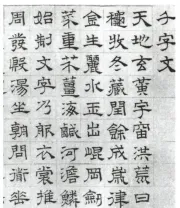 千字文
天地玄黃宇宙洪荒日
穐收冬藏閏餘成歲律
金生麗水玉出崐岡劒
菜重芥薑海鹹河澹鱗
始制文字乃服衣裳推
周發殷湯坐朝問衜垂